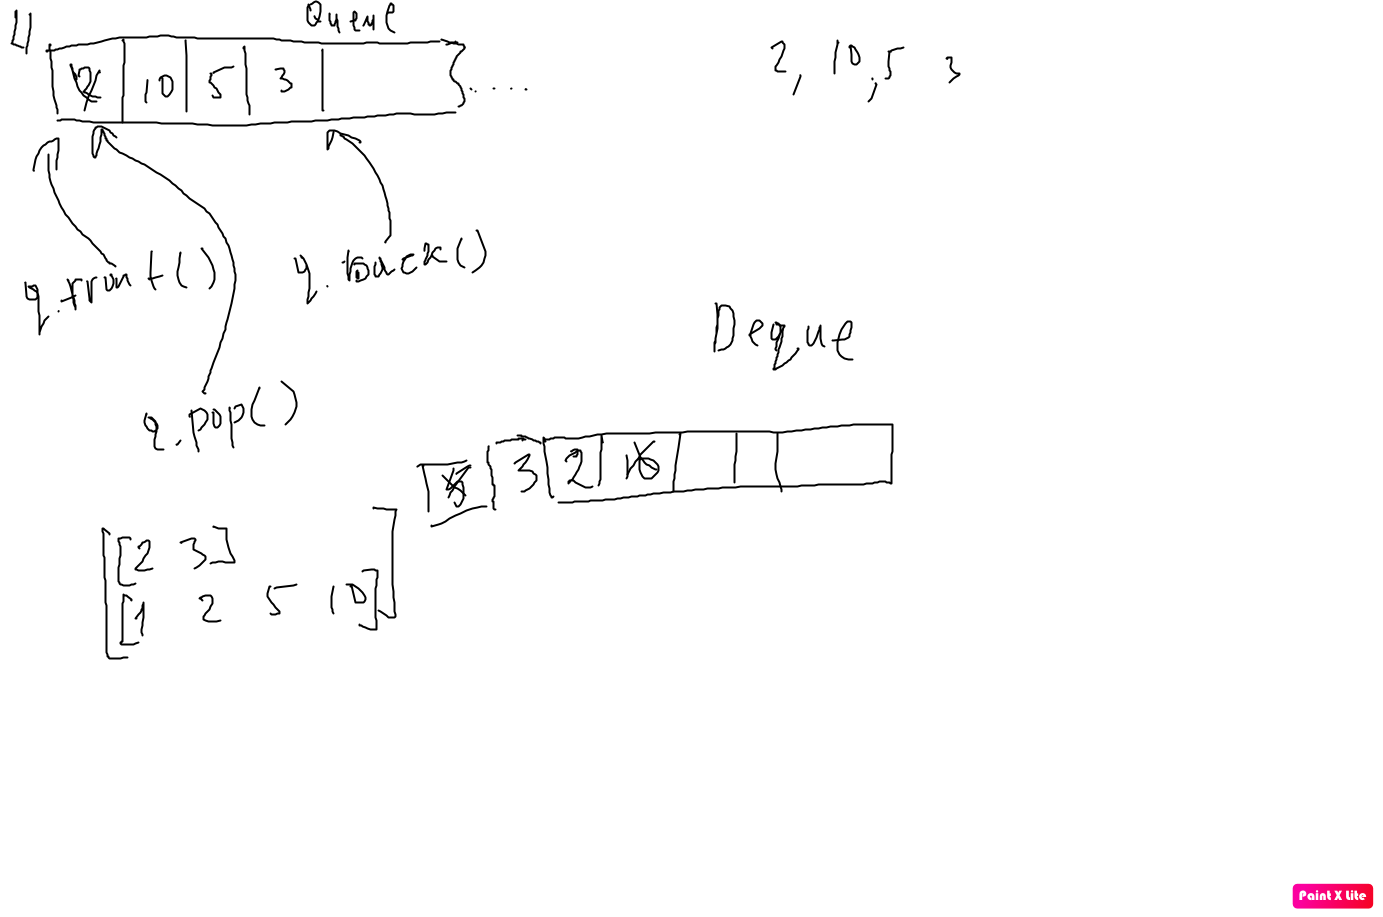 Queue
2 10 5 3 .....
2, 10, 5 3
q.front()
q.back()
q.pop()
Deque
3 2
[[2 3]
[1 2 5 10]]
Paint X Lite